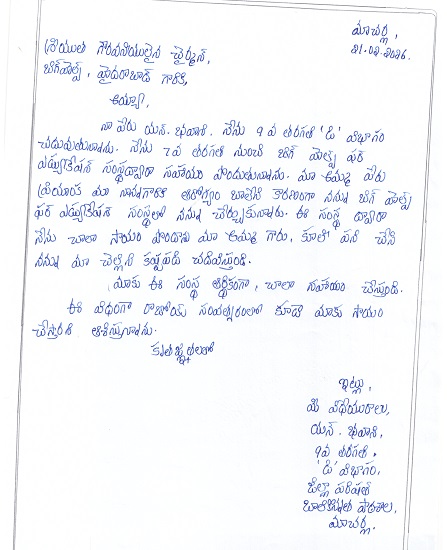 మాచర్ల,
21.02.2026.
శ్రీయుత గౌరవనీయులైన ఛైర్మన్,
బిగ్‌హెల్ప్, హైదరాబాద్ గారికి,
అయ్యా,
నా పేరు యన్. భవాని. నేను 9వ తరగతి 'డి' విభాగం
చదువుతున్నాను. నేను 7వ తరగతి నుంచి బిగ్ హెల్ప్ ఫర్
ఎడ్యుకేషన్ సంస్థద్వారా సహాయం పొందుతున్నాను. మా అమ్మ పేరు
ప్రియాంక మా నాన్నగారికి ఆరోగ్యం బాలేని కారణంగా నన్ను బిగ్ హెల్ప్
ఫర్ ఎడ్యుకేషన్ సంస్థలో నన్ను చేర్చుకున్నారు. ఈ సంస్థ ద్వారా
నేను చాలా సాయం పొందాను మా అమ్మ గారు, కూలి పని చేసి
నన్ను మా చెల్లిని కష్టపడి చదివిస్తుంది.
మాకు ఈ సంస్థ ఆర్థికంగా, చాలా సహాయం చేస్తుంది.
ఈ విధంగా రాబోయే సంవత్సరంలో కూడా మాకు సాయం
చేస్తారని ఆశిస్తున్నాను.
కృతజ్ఞతలతో
ఇట్లు,
మీ విధేయురాలు,
యన్. భవాని,
9వ తరగతి,
'డి' విభాగం,
జిల్లా పరిషత్
బాలికోన్నత పాఠశాల,
మాచర్ల.